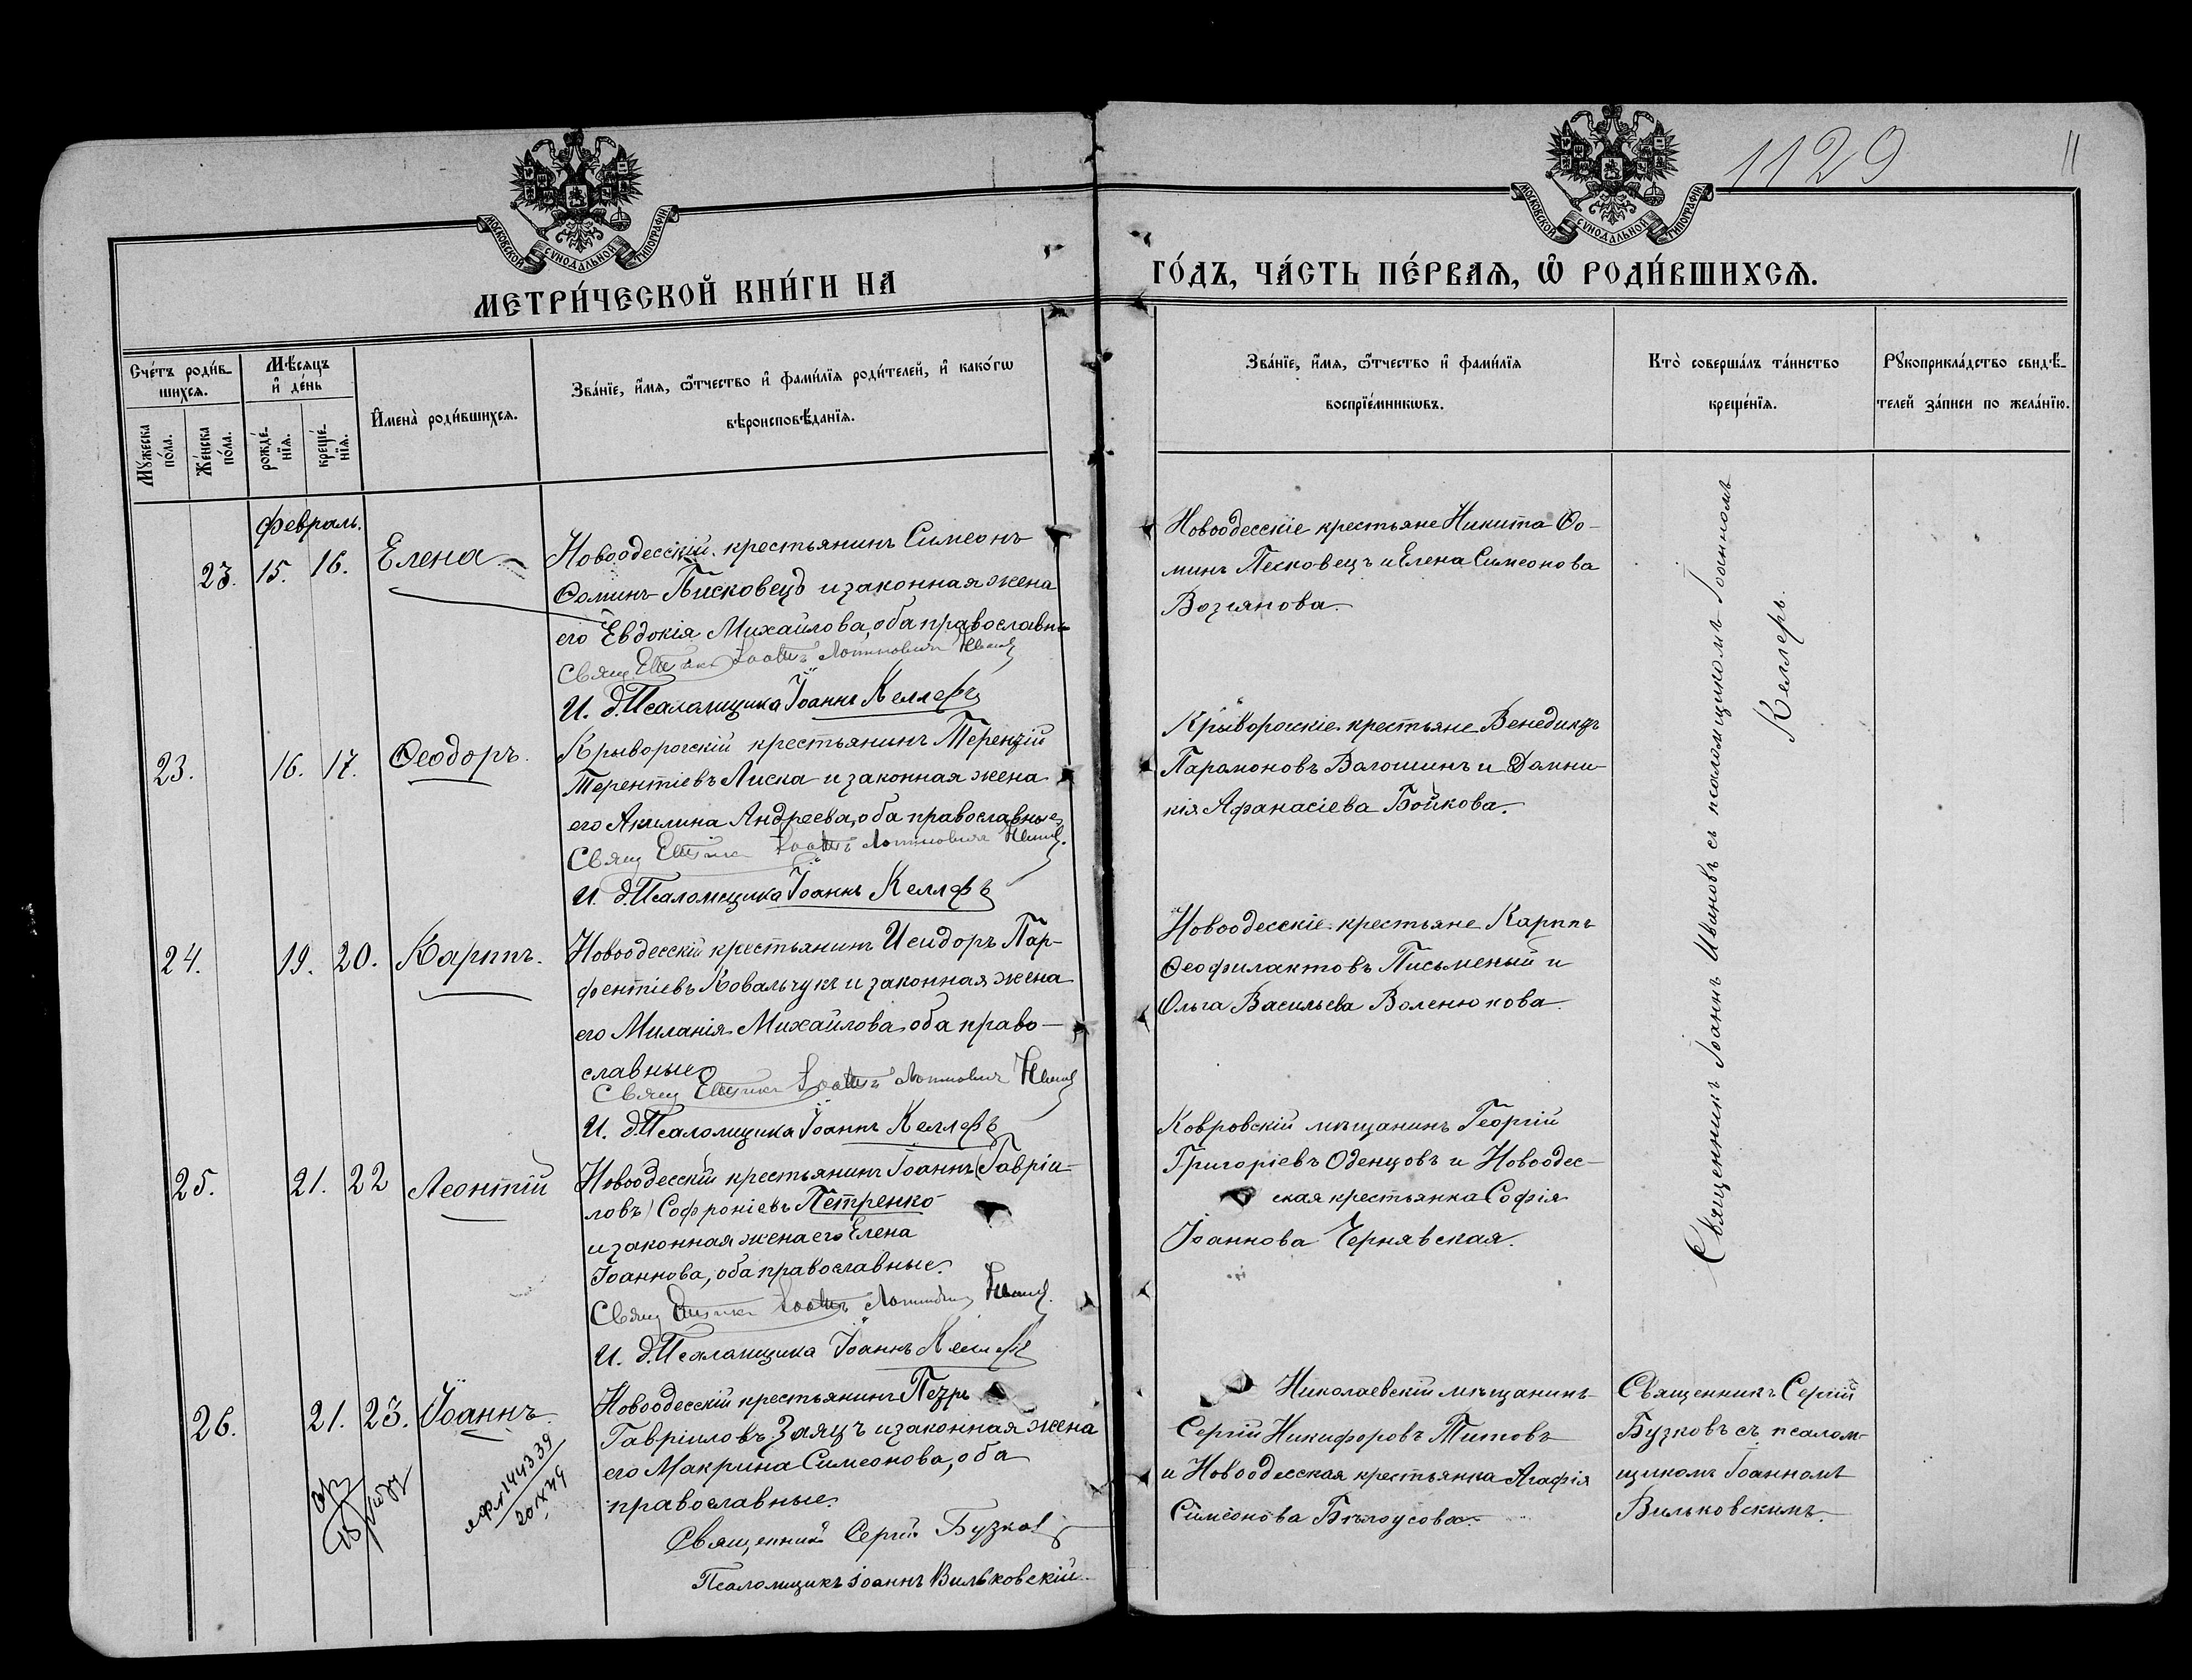 МОСКОВСКОЙ СѴНОДАЛЬНОЙ ТИПОГРАФІИ
МОСКОВСКОЙ СѴНОДАЛЬНОЙ ТИПОГРАФІИ
1129
11
МЕТРИ́ЧЕСКОЙ КНИ́ГИ НА
ГО́ДЪ, ЧА́СТЬ ПЕ́РВАѦ, Ѽ РОДИ́ВШИХСѦ.
Сче́тъ роди́в-
шихсѧ.
Мꙋ́жеска по́ла.
Же́нска по́ла.
Мѣ́сѧцъ
и҆ де́нь
рожде́-
нїѧ.
креще́-
нїѧ.
И҆мена̀ роди́вшихсѧ.
Зва́нїе, и҆́мѧ, ѻ҆́тчество и҆ фами́лїѧ роди́телей, и҆ како́гѡ
вѣроисповѣ́данїѧ.
Зва́нїе, и҆́мѧ, ѻ҆́тчество и҆ фами́лїѧ
воспрїе́мникѡвъ.
Кто̀ соверша́лъ та́инство
креще́нїѧ.
Рꙋкоприкла́дство свидѣ́-
телей за́писи по жела́нїю.
Февраль.
23. 15. 16. Елена
Новоодесскій крестьянинъ Симеонъ
Ѳоминъ Писковецъ и законная жена
его Евдокія Михайлова, оба православн
Свящ
И. д. Псаломщика Іоаннъ Келлеръ
Новоодесскіе крестьяне Никита Ѳо-
минъ Песковецъ и Елена Симеонова
Возіянова.
23. 16. 17. Ѳеодоръ.
Крыворогскій крестьянинъ Терентій
Терентіевъ Лиска и законная жена
его Акилина Андреева, оба православные
Свящ
И. д. Псаломщика Іоаннъ Келлеръ
Крыворогскіе крестьяне Венедиктъ
Парамоновъ Волошинъ и Домни-
кія Афанасіева Бойкова.
24. 19. 20. Карппъ.
Новоодесскій крестьянинъ Исидоръ Пар-
фентіевъ Ковальчукъ и законная жена
его Миланія Михайлова, оба право-
славные
Свящ
И. д. Псаломщика Іоаннъ Келлеръ
Новоодесскіе крестьяне Карппъ
Ѳеофилактовъ Письменый и
Ольга Васильева Воленюкова.
25. 21. 22 Леонтій
Новоодесскій крестьянинъ Іоаннъ (Гавріи-
ловъ) Софроніевъ Петренко
и законная жена его Елена
Іоаннова, оба православные.
Свящ
И. д. Псаломщика Іоаннъ Келлеръ
Ковровскій мѣщанинъ Георгій
Григоріевъ Оденцовъ и Новоодес-
ская крестьянка Софія
Іоаннова Чернявская.
Священникъ Іоаннъ Ивановъ съ псаломщикомъ Іоанномъ
Келлеръ.
26. 21. 23. Іоаннъ.
Новоодесскій крестьянинъ Петръ
Гавріиловъ Заяцъ и законная жена
его Макрина Симеонова, оба
православные.
Священникъ Сергій Бузковъ
Псаломщикъ Іоаннъ Вильковскій
Николаевскій мѣщанинъ
Сергій Никифоровъ Титовъ
и Новоодесская крестьянка Агафія
Симеонова Бѣлоусова.
Священникъ Сергій
Бузковъ съ псалом-
щикомъ Іоанномъ
Вильковскимъ.